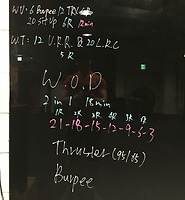 W.U. 6 Burpee 12
20 Sit up 6R 12min
W.T: 12 U.R.R. & 20 L.R.C
5 R
W.O.D
2 in 1 18min
1R 2R 3R 4R 5R 6R 7R
21-18-15-12-9-6-3
Thruster (95/65)
Burpee